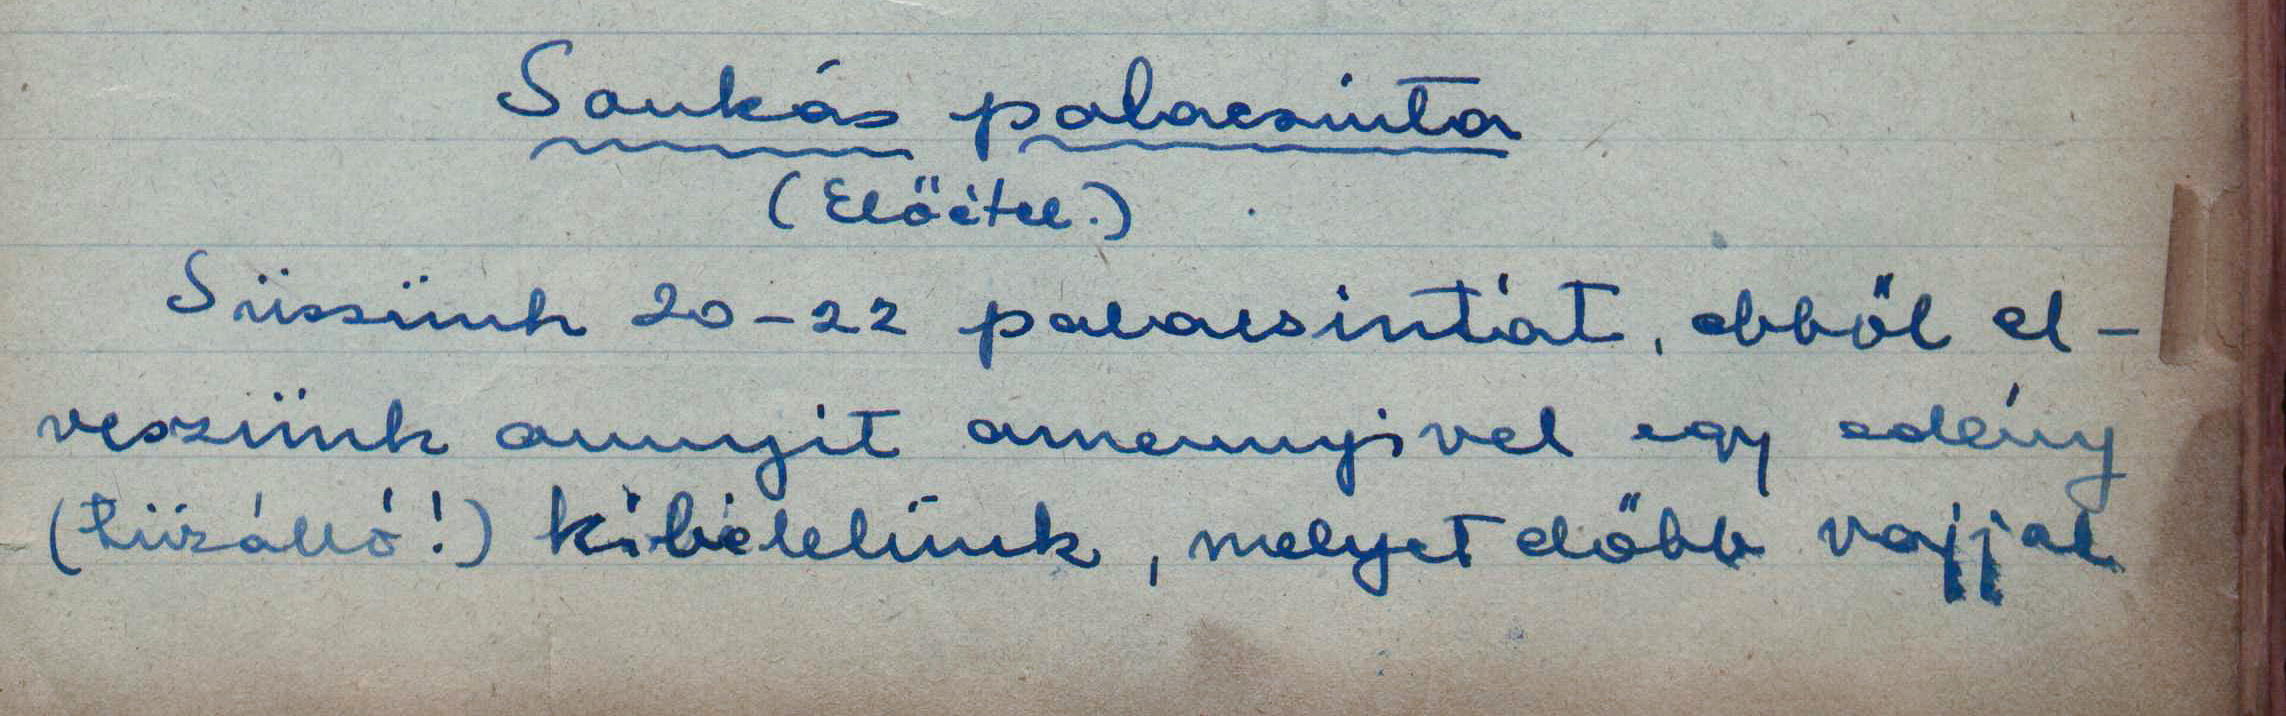 Sonkás palacsinta
(Előétel.)
Süssünk 20-22 palacsintát, ebből el-
veszünk annyit amennyivel egy edény
(tűzálló!) kibélelünk, melyet előbb vajjal